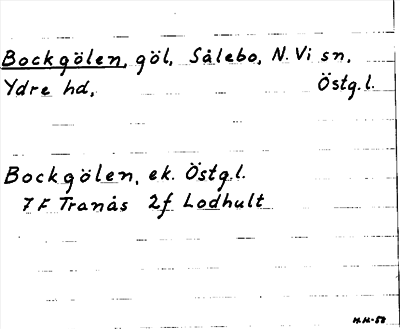 Bockgölen, göl, Sålebo, N. Vi sn,
Ydre hd, Östg.l.
Bockgölen, ek. Östg.l.
7F Tranås 2f Lodhult
H.H-58